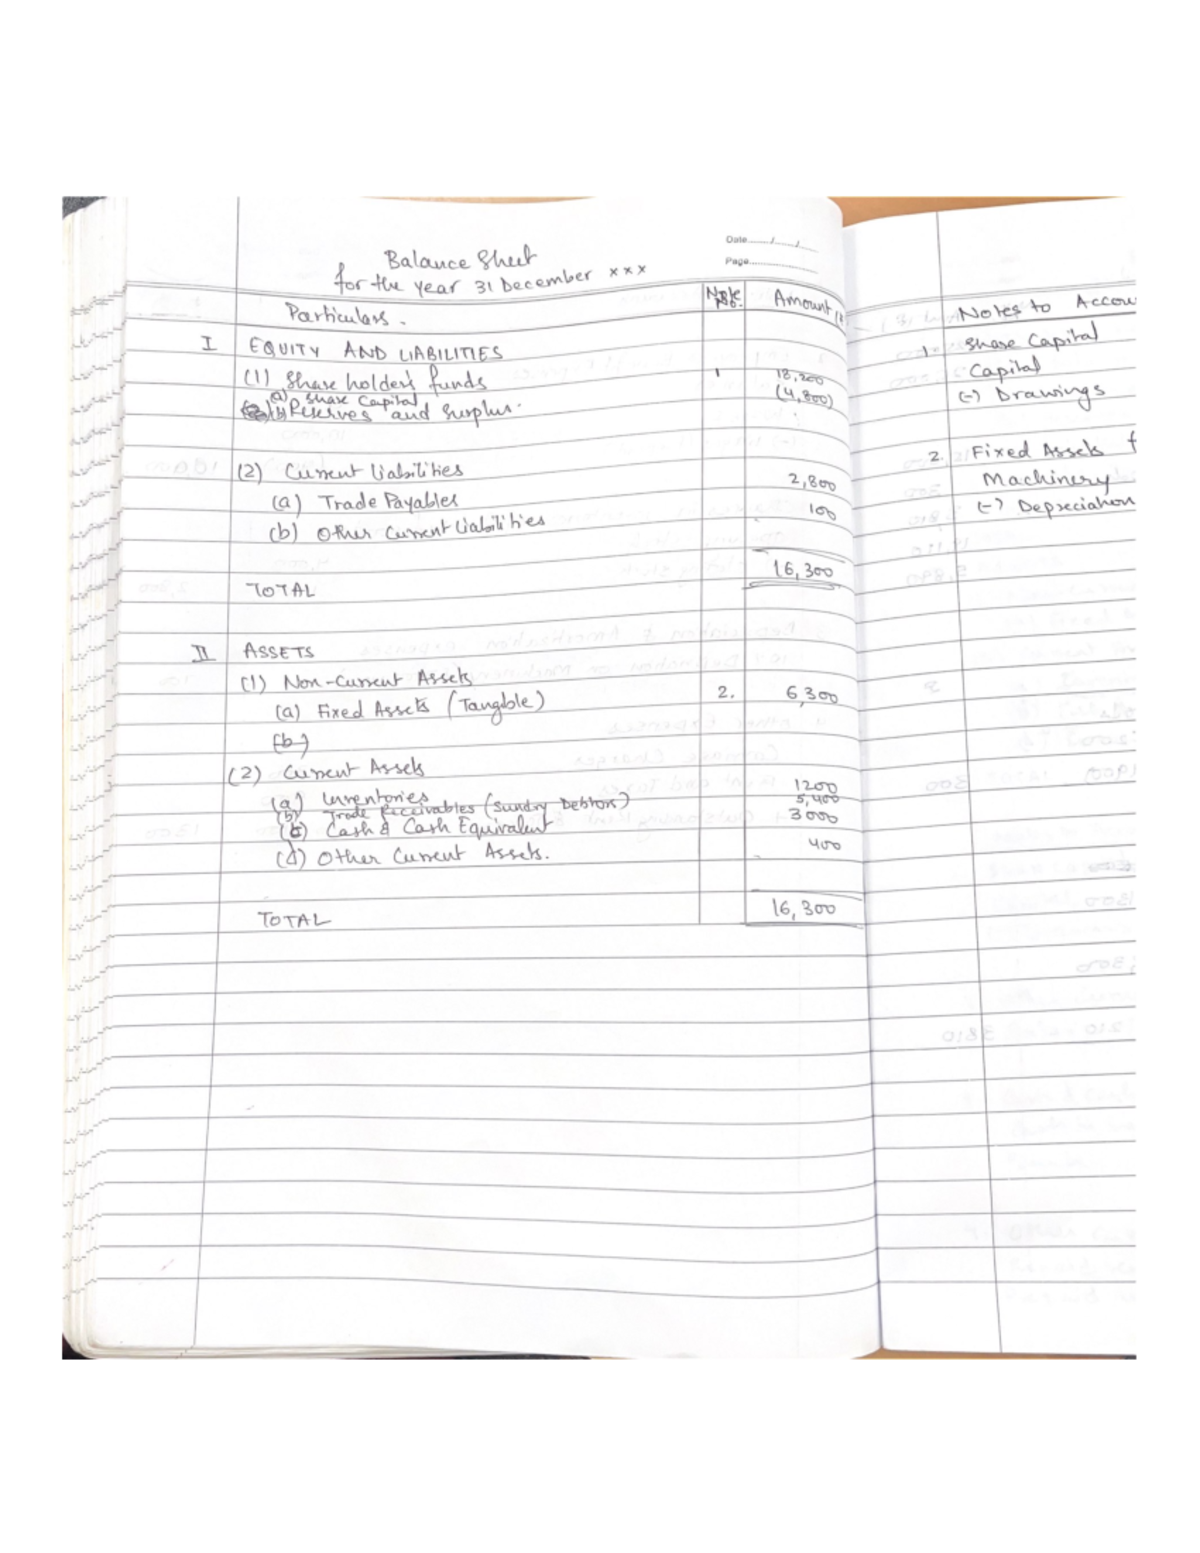 Date ....../....../......
Page..................
Balance Sheet
for the year 31 December xxx
Particulars. Note No. Amount
I EQUITY AND LIABILITIES
(1) Share holder's funds 1 18,200
a) Share Capital (4,800)
(b) Reserves and Surplus.
(2) Current Liabilities
(a) Trade Payables 2,800
(b) Other Current Liabilities 100
TOTAL 16,300
II ASSETS
(1) Non-Current Assets
(a) Fixed Assets (Tangible) 2. 6,300
(b)
(2) Current Assets
(a) Inventories 1200
(b) Trade Receivables (Sundry Debtors) 5,400
(c) Cash & Cash Equivalent 3000
(d) Other Current Assets. 400
TOTAL 16,300
Notes to Accou
1. Share Capital
Capital
(-) Drawings
2. Fixed Assets
Machinery
(-) Depreciation